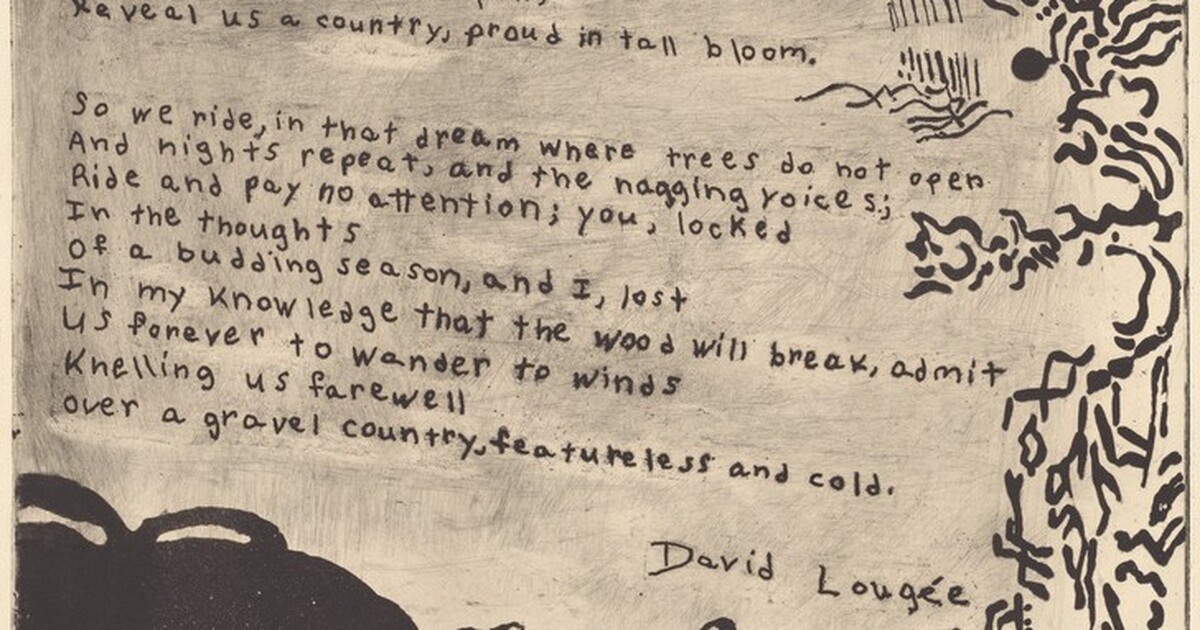 Reveal us a country, proud in tall bloom.
So we ride, in that dream where trees do not open
And nights repeat, and the nagging voices;
Ride and pay no attention; you, locked
In the thoughts
Of a budding season, and I, lost
In my knowledge that the wood will break, admit
Us forever to wander to winds
Knelling us farewell
over a gravel country, featureless and cold.
David Lougée